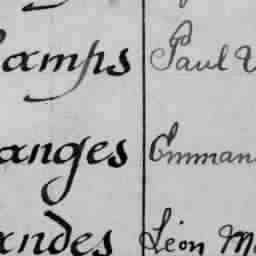 amps Paul V
anges Emman
andes Léon M